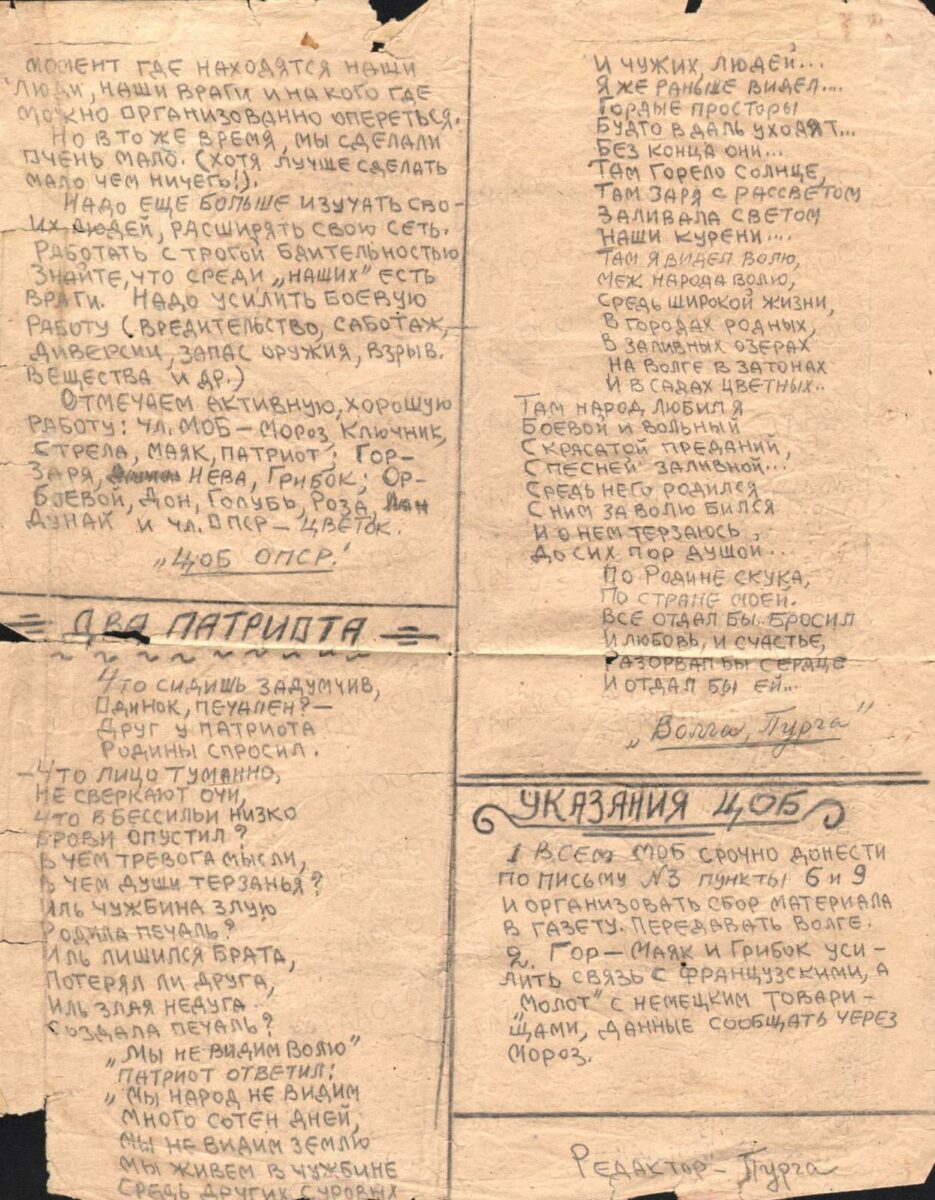 МОМЕНТ ГДЕ НАХОДЯТСЯ НАШИ
ЛЮДИ, НАШИ ВРАГИ И НА КОГО ГДЕ
МОЖНО ОРГАНИЗОВАННО ОПЕРЕТЬСЯ.
НО В ТО ЖЕ ВРЕМЯ, МЫ СДЕЛАЛИ
ОЧЕНЬ МАЛО. (ХОТЯ ЛУЧШЕ СДЕЛАТЬ
МАЛО ЧЕМ НИЧЕГО!).
НАДО ЕЩЕ БОЛЬШЕ ИЗУЧАТЬ СВО-
ИХ ЛЮДЕЙ, РАСШИРЯТЬ СВОЮ СЕТЬ.
РАБОТАТЬ С ТРОГОЙ БДИТЕЛЬНОСТЬЮ
ЗНАЙТЕ, ЧТО СРЕДИ „НАШИХ" ЕСТЬ
ВРАГИ. НАДО УСИЛИТЬ БОЕВУЮ
РАБОТУ (ВРЕДИТЕЛЬСТВО, САБОТАЖ,
ДИВЕРСИИ, ЗАПАС ОРУЖИЯ, ВЗРЫВ.
ВЕЩЕСТВА И ДР.)
ОТМЕЧАЕМ АКТИВНУЮ, ХОРОШУЮ
РАБОТУ: ЧЛ. МОБ – МОРОЗ, КЛЮЧНИК,
СТРЕЛА, МАЯК, ПАТРИОТ; ГОР–
ЗАРЯ, НЕВА, ГРИБОК; ОР–
БОЕВОЙ, ДОН, ГОЛУБЬ, РОЗА,
ДУНАЙ И ЧЛ. ОПСР – ЦВЕТОК.
„ЦОБ ОПСР."
ДВА ПАТРИОТА
ЧТО СИДИШЬ ЗАДУМЧИВ,
ОДИНОК, ПЕЧАЛЕН? –
ДРУГ У ПАТРИОТА
РОДИНЫ СПРОСИЛ.
– ЧТО ЛИЦО ТУМАННО,
НЕ СВЕРКАЮТ ОЧИ,
ЧТО В БЕССИЛЬИ НИЗКО
БРОВИ ОПУСТИЛ?
В ЧЕМ ТРЕВОГА МЫСЛИ,
В ЧЕМ ДУШИ ТЕРЗАНЬЯ?
ИЛЬ ЧУЖБИНА ЗЛУЮ
РОДИЛА ПЕЧАЛЬ?
ИЛЬ ЛИШИЛСЯ БРАТА,
ПОТЕРЯЛ ЛИ ДРУГА,
ИЛЬ ЗЛАЯ НЕДУГА
СОЗДАЛА ПЕЧАЛЬ?
„МЫ НЕ ВИДИМ ВОЛЮ"
ПАТРИОТ ОТВЕТИЛ:
„МЫ НАРОД НЕ ВИДИМ
МНОГО СОТЕН ДНЕЙ,
МЫ НЕ ВИДИМ ЗЕМЛЮ
МЫ ЖИВЕМ В ЧУЖБИНЕ
СРЕДЬ ДРУГИХ СУРОВЫХ
И ЧУЖИХ, ЛЮДЕЙ...
Я ЖЕ РАНЬШЕ ВИДЕЛ....
ГОРДЫЕ ПРОСТОРЫ
БУДТО В ДАЛЬ УХОДЯТ...
БЕЗ КОНЦА ОНИ...
ТАМ ГОРЕЛО СОЛНЦЕ,
ТАМ ЗАРЯ С РАССВЕТОМ
ЗАЛИВАЛА СВЕТОМ
НАШИ КУРЕНИ....
ТАМ Я ВИДЕЛ ВОЛЮ,
МЕЖ НАРОДА ВОЛЮ,
СРЕДЬ ШИРОКОЙ ЖИЗНИ,
В ГОРОДАХ РОДНЫХ,
В ЗАЛИВНЫХ ОЗЕРАХ
НА ВОЛГЕ В ЗАТОНАХ
И В САДАХ ЦВЕТНЫХ..
ТАМ НАРОД ЛЮБИЛ Я
БОЕВОЙ И ВОЛЬНЫЙ
С КРАСАТОЙ ПРЕДАНИЙ,
С ПЕСНЕЙ ЗАЛИВНОЙ...
СРЕДЬ НЕГО РОДИЛСЯ
С НИМ ЗА ВОЛЮ БИЛСЯ
И О НЕМ ТЕРЗАЮСЬ,
ДО СИХ ПОР ДУШОЙ...
ПО РОДИНЕ СКУКА,
ПО СТРАНЕ МОЕЙ.
ВСЕ ОТДАЛ БЫ.. БРОСИЛ
И ЛЮБОВЬ, И СЧАСТЬЕ,
РАЗОРВАЛ БЫ СЕРДЦЕ
И ОТДАЛ БЫ ЕЙ...
„Волга, Пурга"
УКАЗАНИЯ ЦОБ
1 ВСЕМ МОБ СРОЧНО ДОНЕСТИ
ПО ПИСЬМУ №3 ПУНКТЫ 6 И 9
И ОРГАНИЗОВАТЬ СБОР МАТЕРИАЛА
В ГАЗЕТУ. ПЕРЕДАВАТЬ ВОЛГЕ.
2. ГОР – МАЯК И ГРИБОК УСИ-
ЛИТЬ СВЯЗЬ С ФРАНЦУЗСКИМИ, А
„МОЛОТ" С НЕМЕЦКИМ ТОВАРИ-
ЩАМИ, ДАННЫЕ СООБЩАТЬ ЧЕРЕЗ
МОРОЗ.
РЕДАКТОР – Пурга